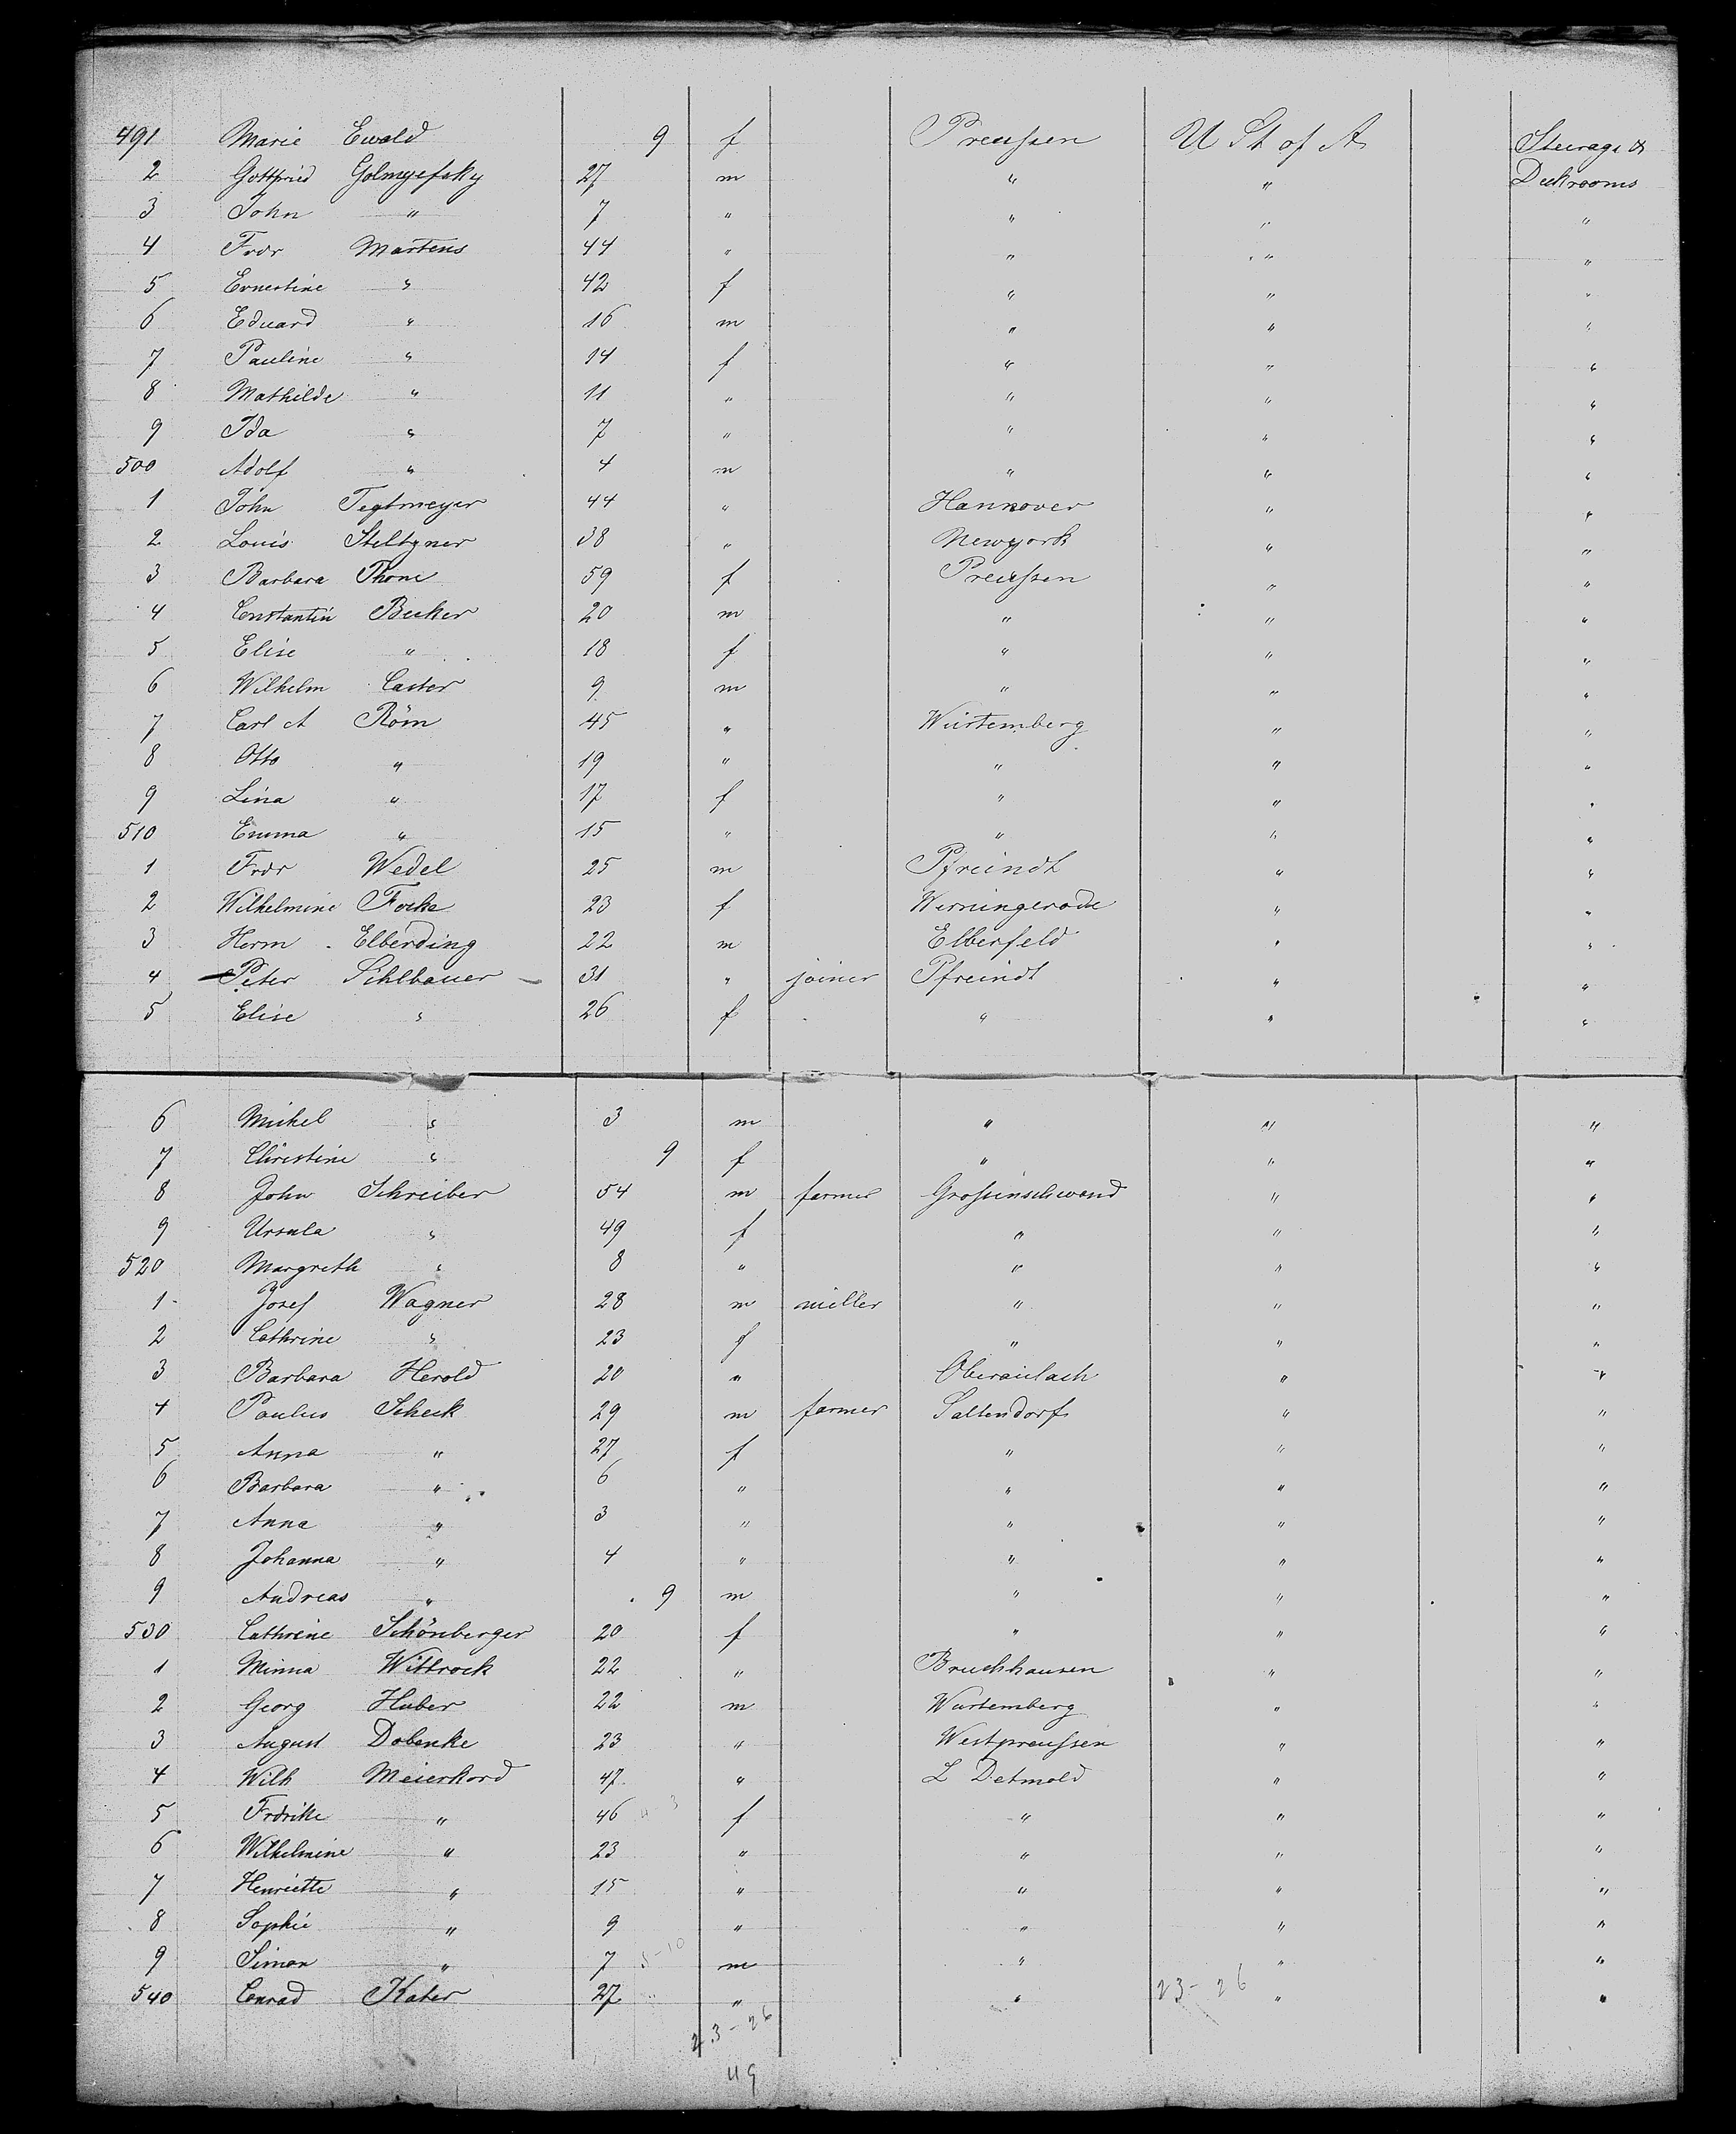 491 Marie Ewald 9 f Preussen U St of A Steerage &
2 Gottfried Golmyefsky 27 m " " Deckrooms
3 John " 7 " " " "
4 Frdr Martens 44 " " " "
5 Ernestine " 42 f " " "
6 Eduard " 16 m " " "
7 Pauline " 14 f " " "
8 Mathilde " 11 " " " "
9 Ida " 7 " " " "
500 Adolf " 4 m " " "
1 John Tegtmeyer 44 " Hannover " "
2 Louis Steltzner 38 " Newyork " "
3 Barbara Thone 59 f Preussen " "
4 Constantin Becker 20 m " " "
5 Elise " 18 f " " "
6 Wilhelm Caster 9 m " " "
7 Carl A Röm 45 " Würtemberg " "
8 Otto " 19 " " " "
9 Lina " 17 f " " "
510 Emma " 15 " " " "
1 Frdr Wedel 25 m Pfreindt " "
2 Wilhelmine Focke 23 f Werningerode " "
3 Herm Elberding 22 m Elberfeld " "
4 Peter Sihlbauer 31 " joiner Pfreindt " "
5 Elise " 26 f " " "
6 Michel " 3 m " " "
7 Christine " 9 f " " "
8 John Schreiber 54 m farmer Grossenschwand " "
9 Ursula " 49 f " " "
520 Margreth " 8 " " " "
1 Josef Wagner 28 m miller " " "
2 Cathrine " 23 f " " "
3 Barbara Herold 20 " Oberaulach " "
4 Paulus Scheck 29 m farmer Saltendorf " "
5 Anna " 27 f " " "
6 Barbara " 6 " " " "
7 Anna " 3 " " " "
8 Johanna " 4 " " " "
9 Andreas " 9 m " " "
530 Cathrine Schönberger 20 f " " "
1 Minna Wittrock 22 " Bruchhausen " "
2 Georg Huber 22 m Wurtemberg " "
3 August Dobenke 23 " Westpreussen " "
4 Wilh Meierkord 47 " L Detmold " "
5 Frdrike " 46 f " " "
6 Wilhelmine " 23 " " " "
7 Henriette " 15 " " " "
8 Sophie " 9 " " " "
9 Simon " 7 5-10 m " " "
540 Conrad Kater 27 " " 23-26 " "
23-26
49